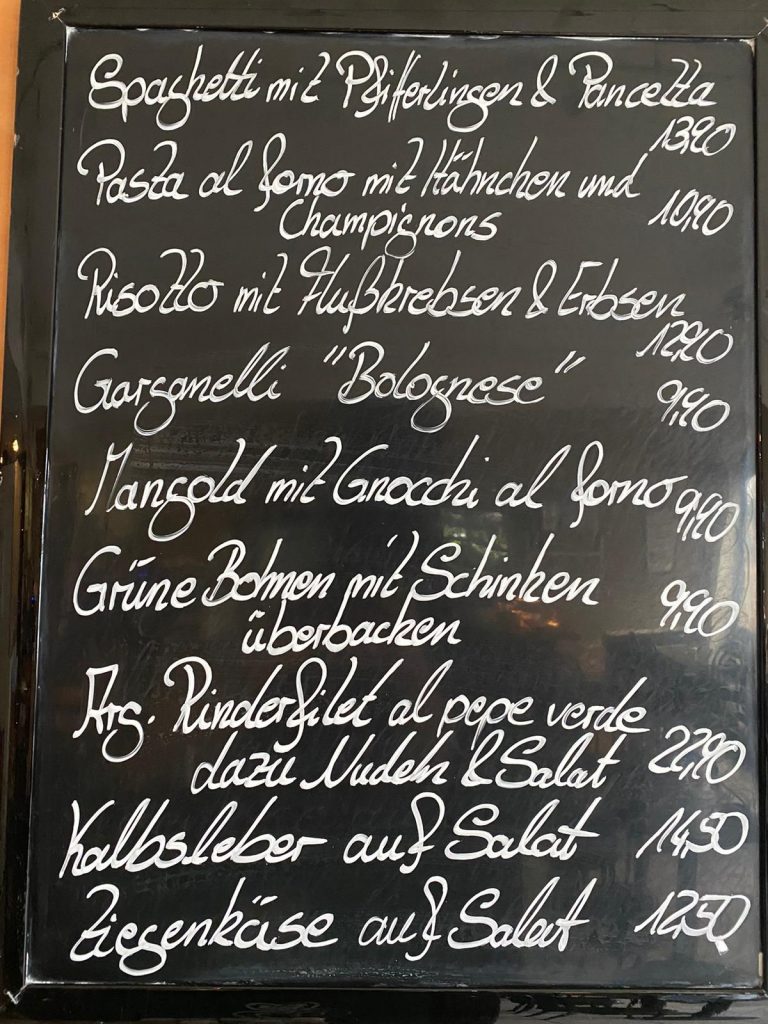 Spaghetti mit Pfifferlingen & Pancetta
13,90
Pasta al forno mit Hähnchen und
Champignons 10,90
Risotto mit Flußkrebsen & Erbsen
12,90
Garganelli "Bolognese" 9,90
Mangold mit Gnocchi al forno 9,90
Grüne Bohnen mit Schinken
überbacken 9,90
Arg. Rinderfilet al pepe verde
dazu Nudeln & Salat 22,90
Kalbsleber auf Salat 14,50
Ziegenkäse auf Salat 12,50